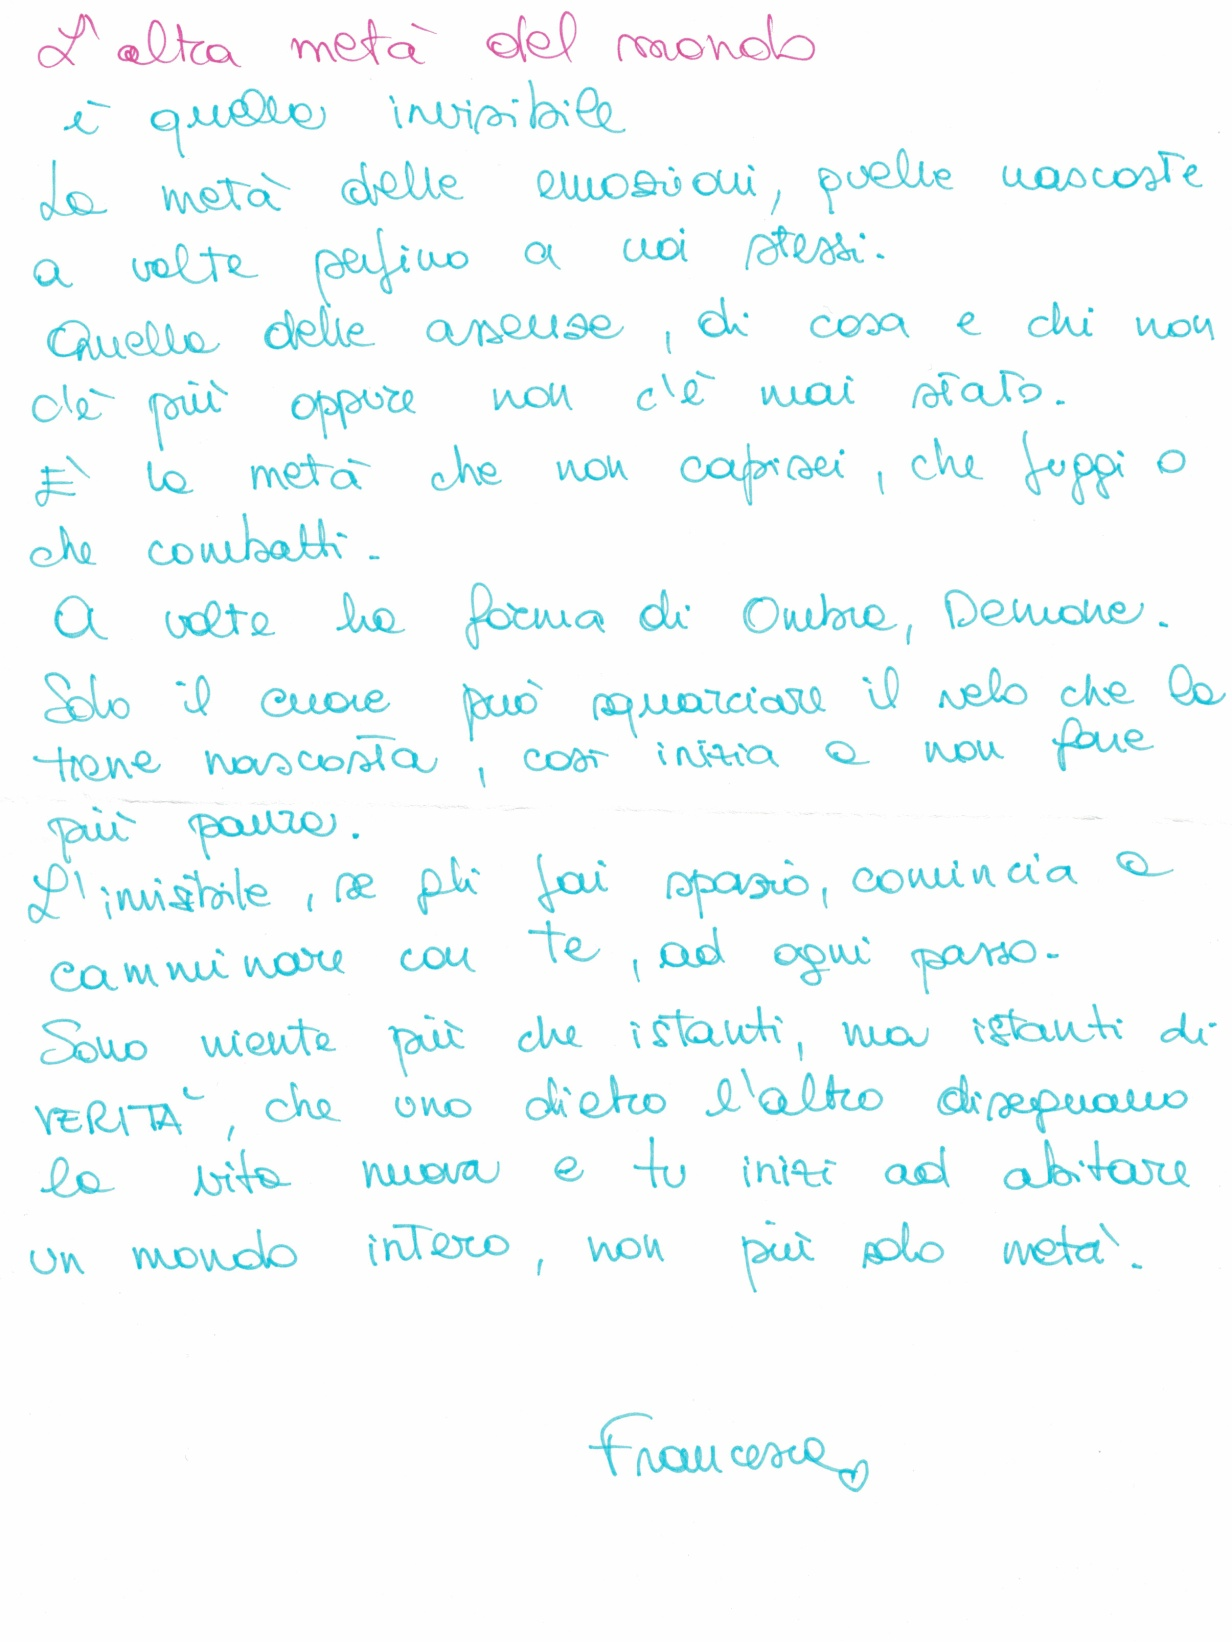 L'altra metà del mondo
è quella invisibile
La metà delle emozioni, quelle nascoste
a volte perfino a noi stessi.
Quella delle assenze, di cosa e chi non
c'è più oppure non c'è mai stato.
E' la metà che non capisci, che fuggi o
che combatti.
A volte ha forma di Ombra, Demone.
Solo il cuore può squarciare il velo che la
tiene nascosta, così inizia a non fare
più paura.
L'invisibile, se gli fai spazio, comincia a
camminare con te, ad ogni passo.
Sono niente più che istanti, ma istanti di
VERITA', che uno dietro l'altro disegnano
la vita nuova e tu inizi ad abitare
un mondo intero, non più solo metà.
Francesca